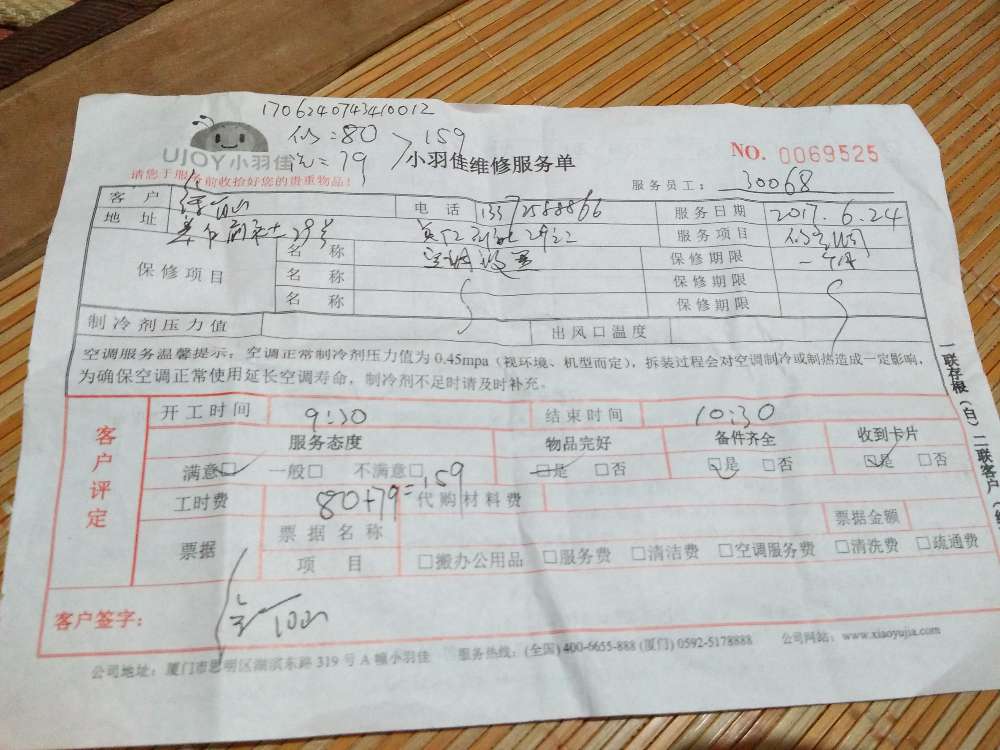 1706240743410012
=80
159
=79
UJOY小羽佳
小羽佳维修服务单
NO. 0069525
请您于服务前收拾好您的贵重物品!
服务员工: 30068
客户
电话
服务日期 2017.6.24
地址
服务项目
保修项目
名称
保修期限
名称
保修期限
名称
保修期限
制冷剂压力值
出风口温度
空调服务温馨提示:空调正常制冷剂压力值为0.45mpa(视环境、机型而定),拆装过程会对空调制冷或制热造成一定影响,
为确保空调正常使用延长空调寿命,制冷剂不足时请及时补充。
一联存根(白)二联客户
客户评定
开工时间 9:30
结束时间 10:30
服务态度
物品完好
备件齐全
收到卡片
满意□ 一般□ 不满意□
□是 □否
□是 □否
□是 □否
工时费 80+79=159
代购材料费
票据
票据名称
票据金额
项目
□搬办公用品 □服务费 □清洁费 □空调服务费 □清洗费 □疏通费
客户签字:
公司地址:厦门市思明区湖滨东路319号A幢小羽佳 服务热线:(全国)400-6655-888 (厦门)0592-5178888 公司网站:www.xiaoyujia.com